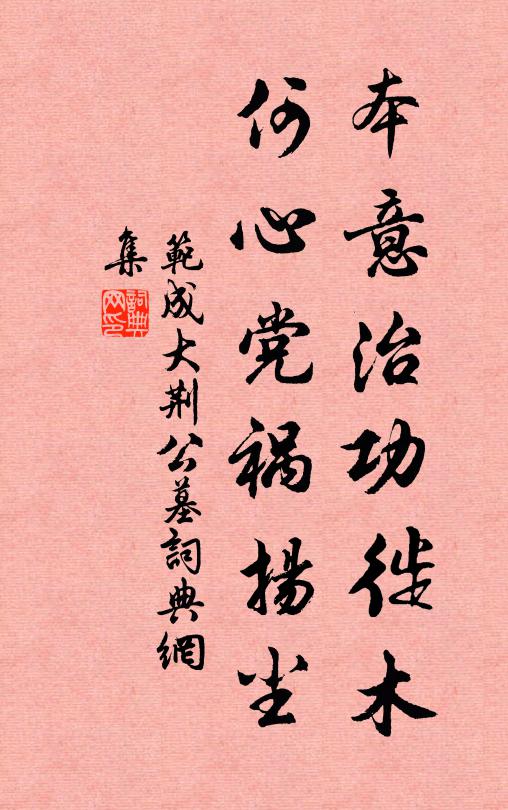 本意治功徙木
何心党祸扬尘
範成大荆公墓詞典網
集
詞典
网印